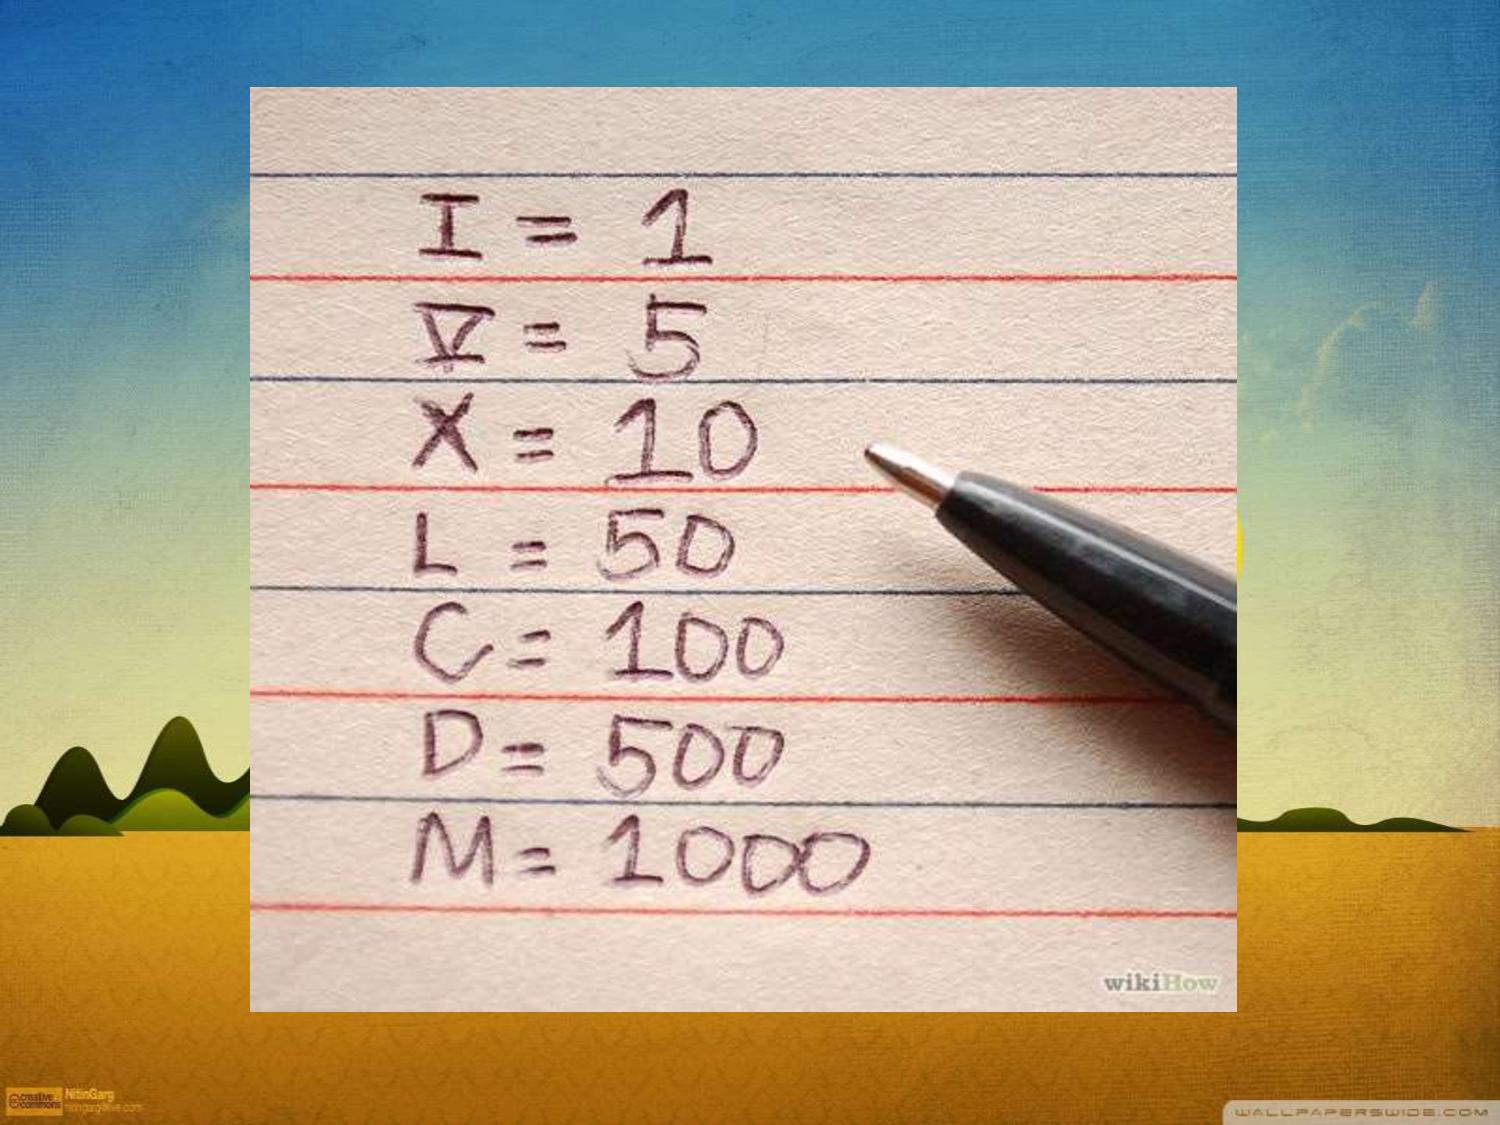 I = 1
V = 5
X = 10
L = 50
C = 100
D = 500
M = 1000
wikiHow
creative commons
NitinGarg
WALLPAPERSWIDE.COM